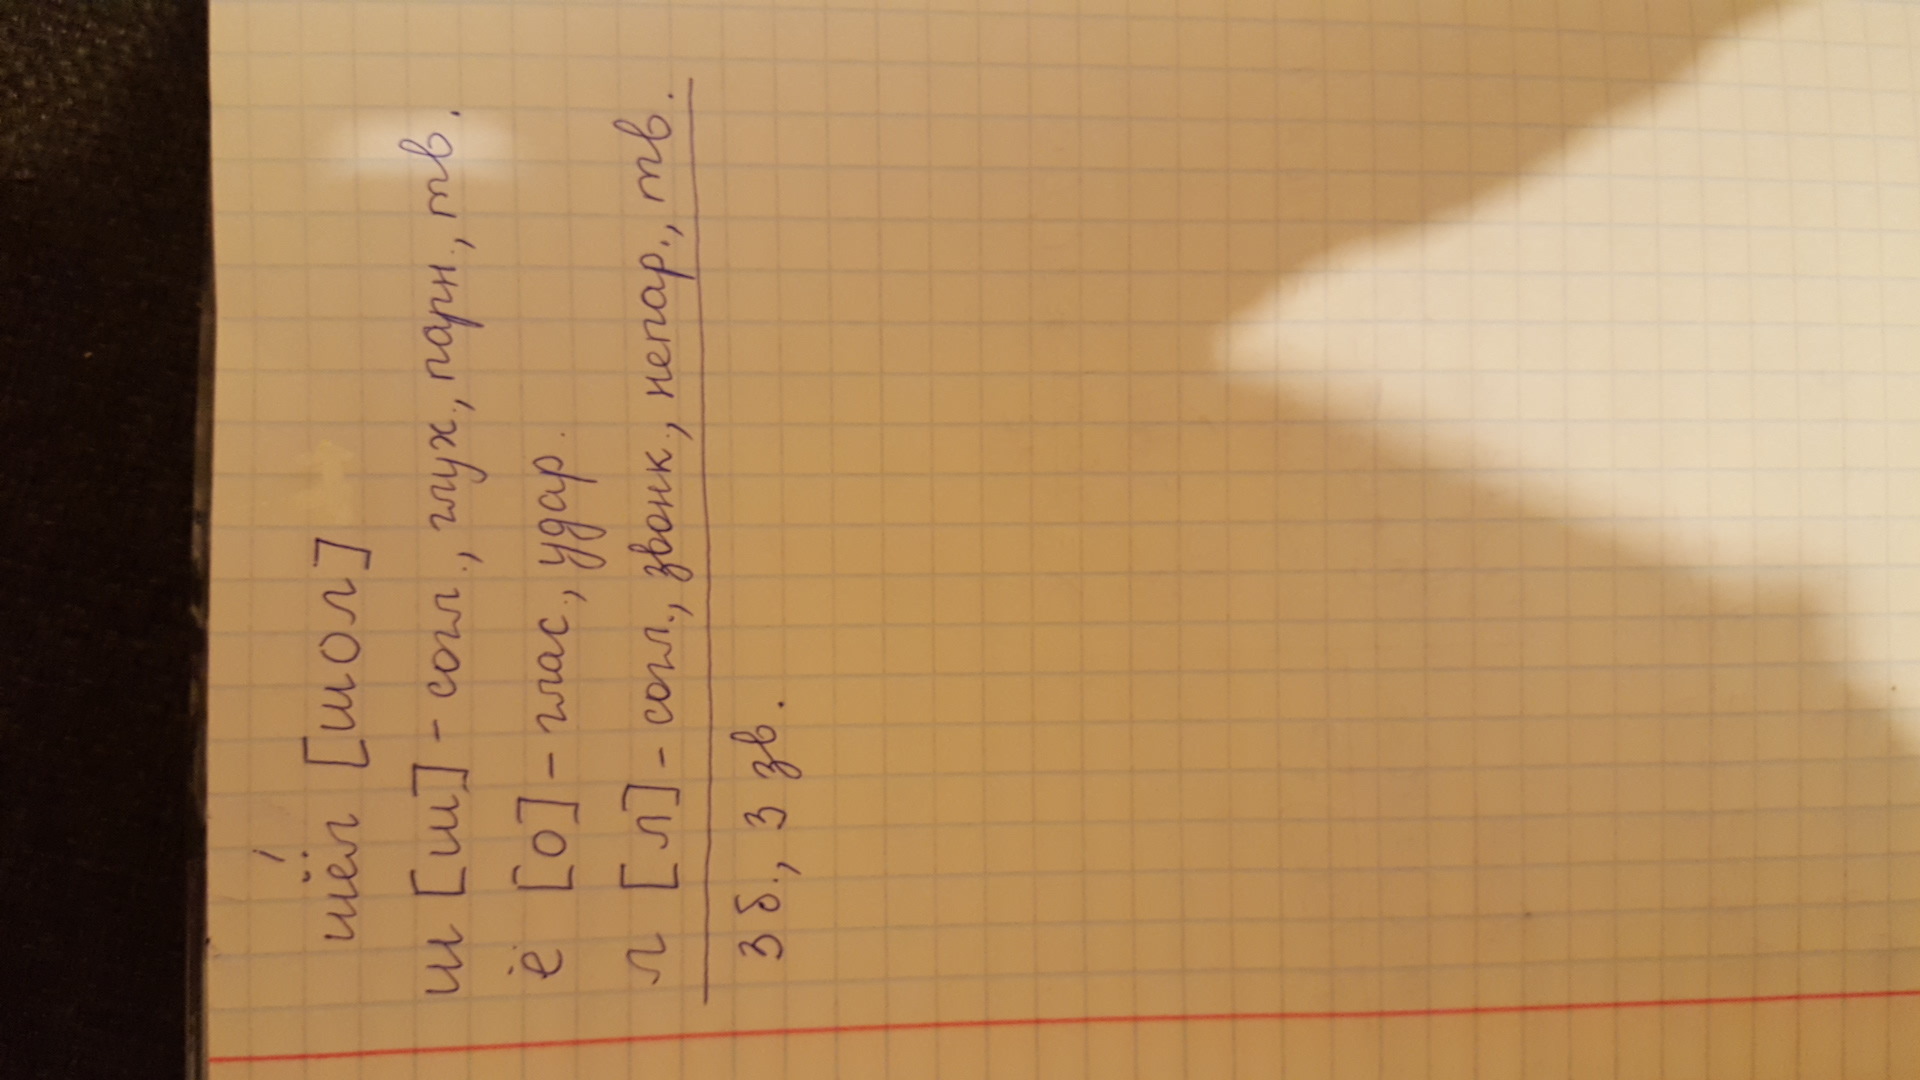 шёл [шол]
ш [ш] - согл., глух., парн., тв.
ё [о] - глас., удар.
л [л] - согл., звонк., непар., тв.
3 б., 3 зв.